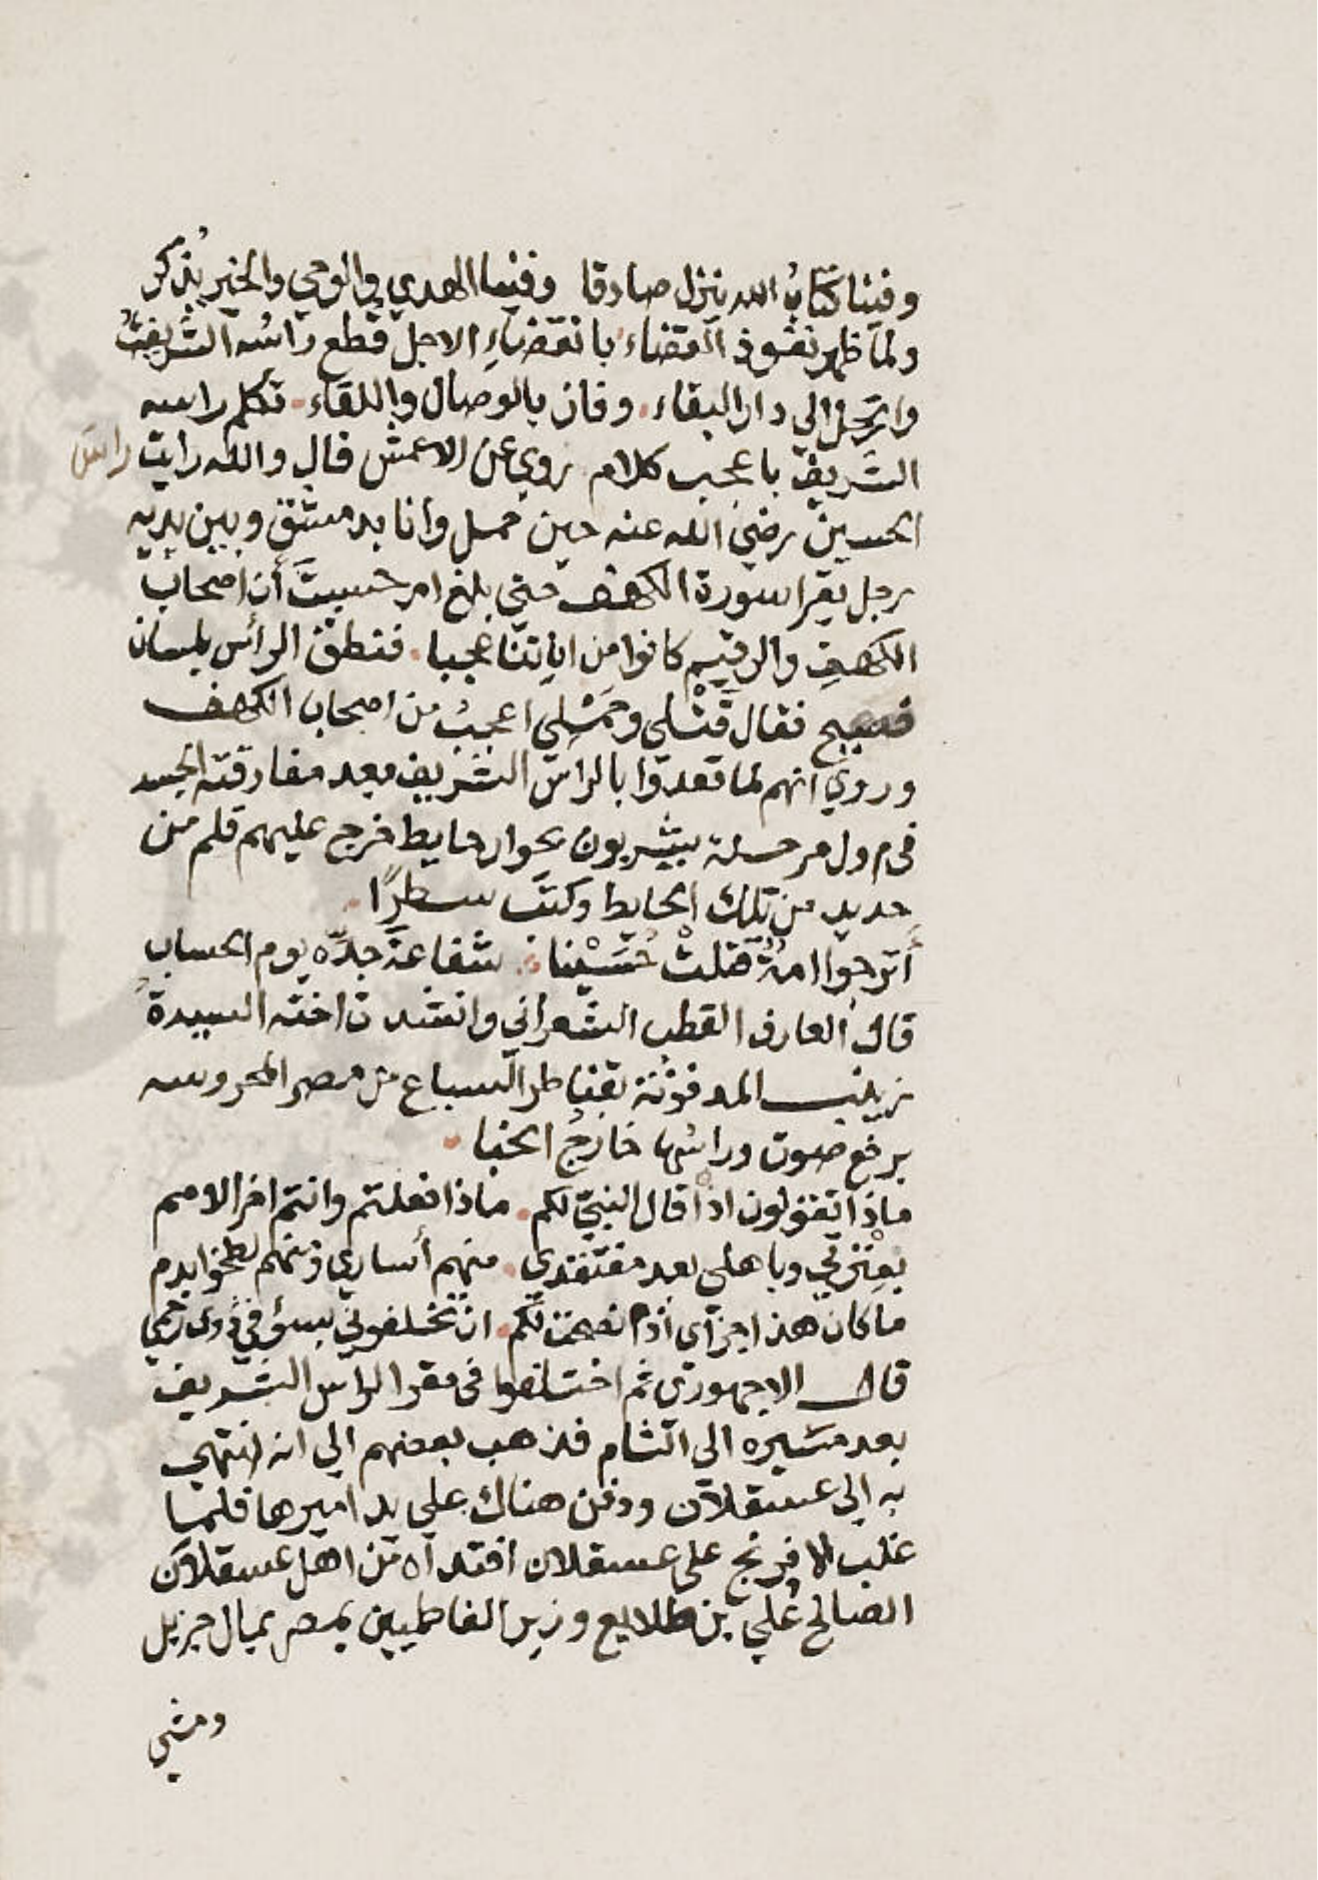 وفينا كتابُ الله ينزل صادقا وفينا الهدي والوحي والخير يُذكرُ
ولما ظهر نفوذ القضاء بانقضاءِ الاجل قطع راسُه الشريفُ
وارتحل الي دار البقاء. وفاز بالوصال واللقاء. تكلم راسه
الشريف باعجب كلام روي عن الاعمش قال والله رايت راسَ
الحسين رضي الله عنه حين حمل وانا بدمشق وبين يديه
رجل يقرا سورة الكهف حتي بلغ ام حسبتَ أن اصحابَ
الكهفِ والرقيم كانوا من اياتنا عجبا. فنطق الرأس بلسان
فصيح فقال قَتْلي وحَمْلِي اعجبُ من اصحاب الكهف
وروي انهم لما قعدوا بالراس الشريف بعد مفارقته الجسد
في اول مرحلة يشربون بجوار حايط خرج عليهم قلم من
حديد من تلك الحايط وكتب سطرًا.
أترجوا امةٌ قتلتْ حُسَيْنا ∴ شفاعةَ جدّه يوم الحساب
قال العارف القطب الشعراني وانشدت اخته السيدةُ
زينب المدفونة بقناطر السباع من مصر المحروسه
برفع صوت وراسُها خارجُ الخبا.
ماذا تقولون اذْ قال النبيّ لكم. ماذا فعلتم وانتم اخر الامم
بعِتْرتي وباهلي بعد مفتقدي. منهم أساري ومنهم لطخوا بدم
ما كان هذا جزآي اذ نصحت لكم. ان تخلفوني بسؤ في ذوي رحمي
قال الاجهوري ثم اختلفوا في مقر الراس الشريف
بعد مَسَيره الى الشام فذهب بعضهم الي انه انتهي
به الى عسقلان ودفن هناك علي يد اميرها فلما
غلب الافرنج على عسقلان افتداه من اهل عسقلان
الصالح عُليّ بن طلايع وزير الفاطميين بمصر بمال جزيل
ومشي